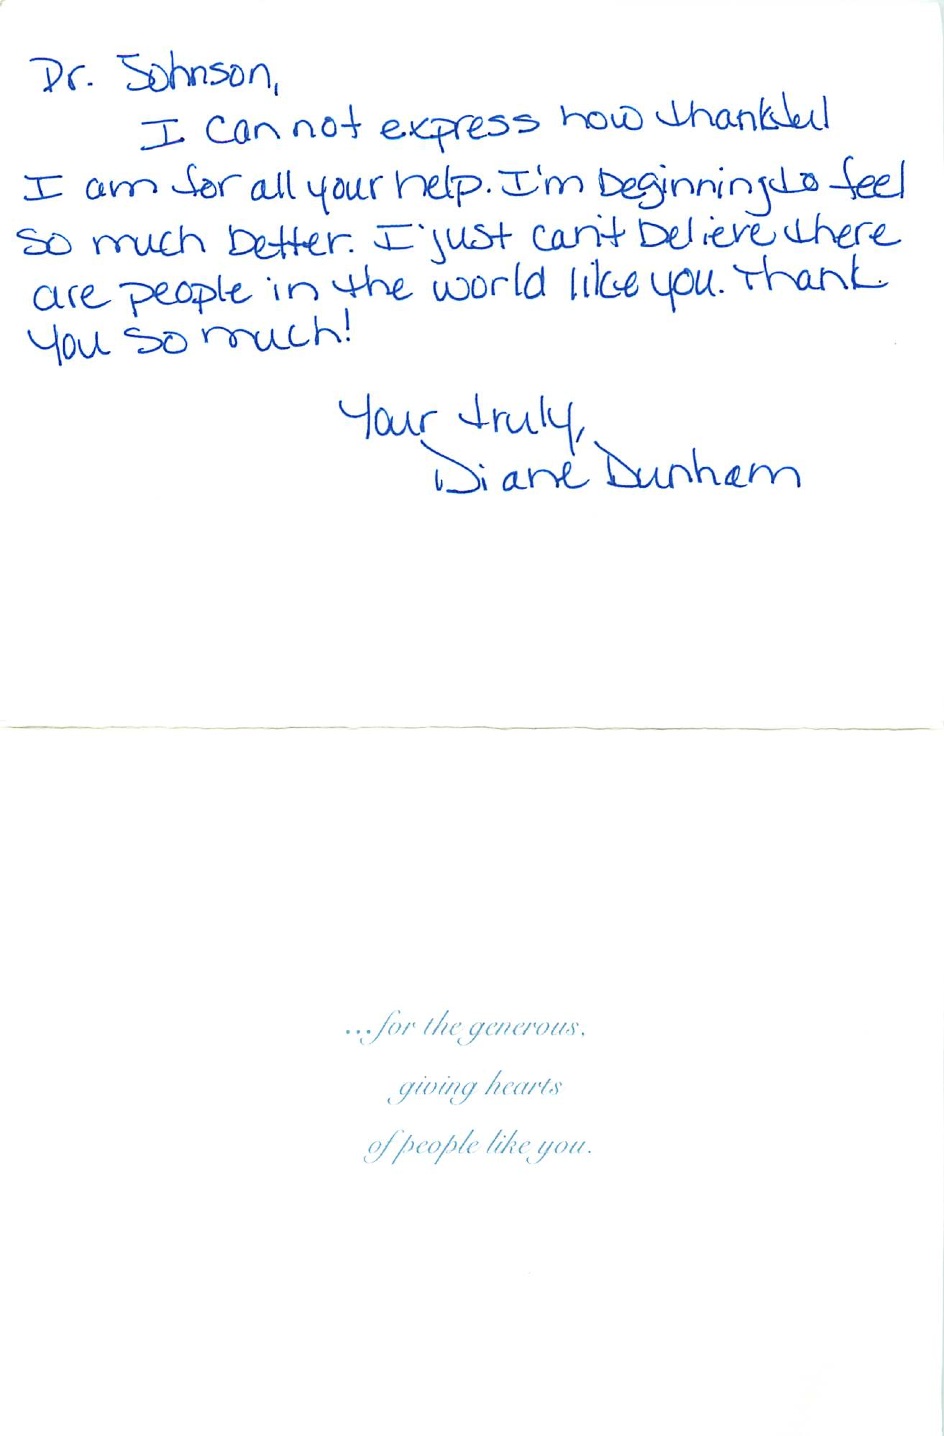 Dr. Johnson,
I can not express how thankful
I am for all your help. I'm beginning to feel
so much better. I just can't believe there
are people in the world like you. Thank
you so much!
Your truly,
Diane Dunham
...for the generous,
giving hearts
of people like you.